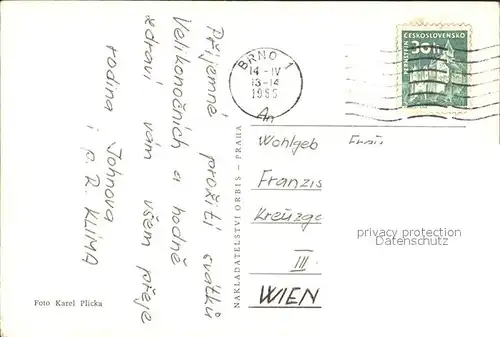 Příjemné prožití svátků
Velikonočních a hodně
zdraví vám všem přeje
rodina Johnova
i p. R. KLÍMA
Foto Karel Plicka
NAKLADATELSTVÍ ORBIS – PRAHA
BRNO 1
14 -IV
13-14
1965
ČESKOSLOVENSKO
30h
An
Wohlgeb
Franzis
Kreuzge
III.
WIEN
privacy protection
Datenschutz